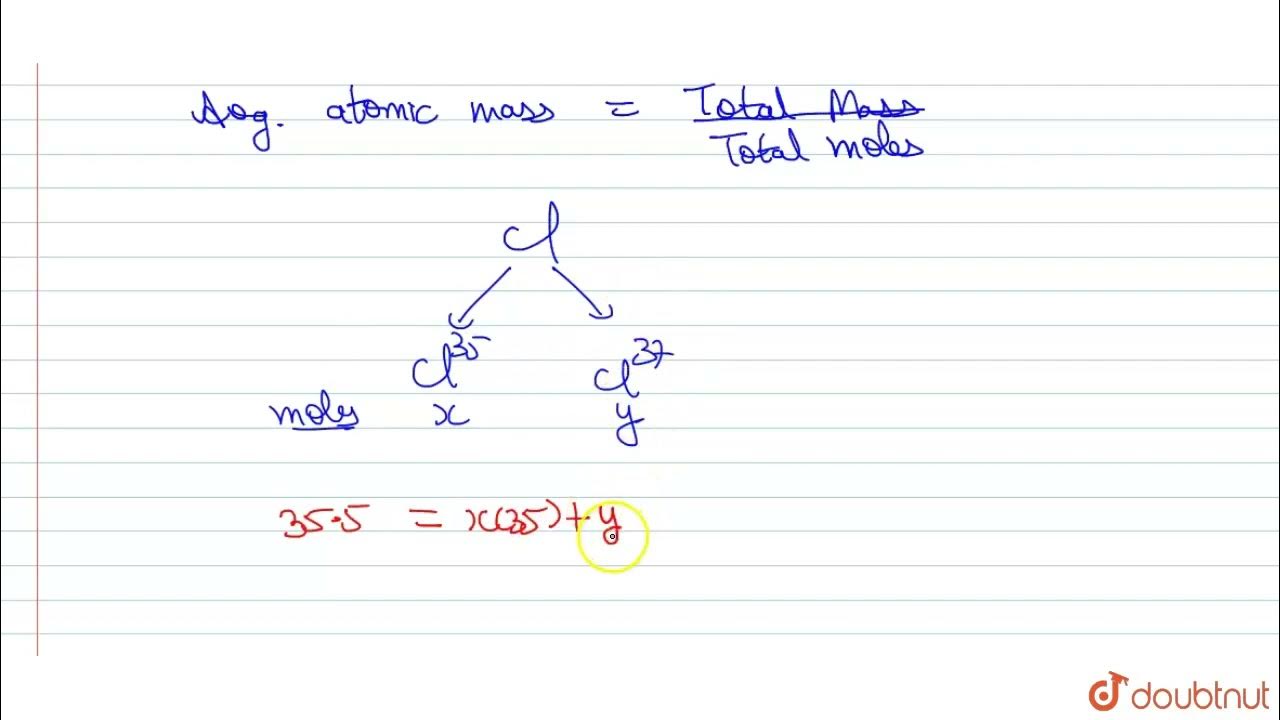 Avg. atomic mass = Total Mass
Total moles
Cl
Cl³⁵ Cl³⁷
moles x y
35.5 = x(35) + y
doubtnut